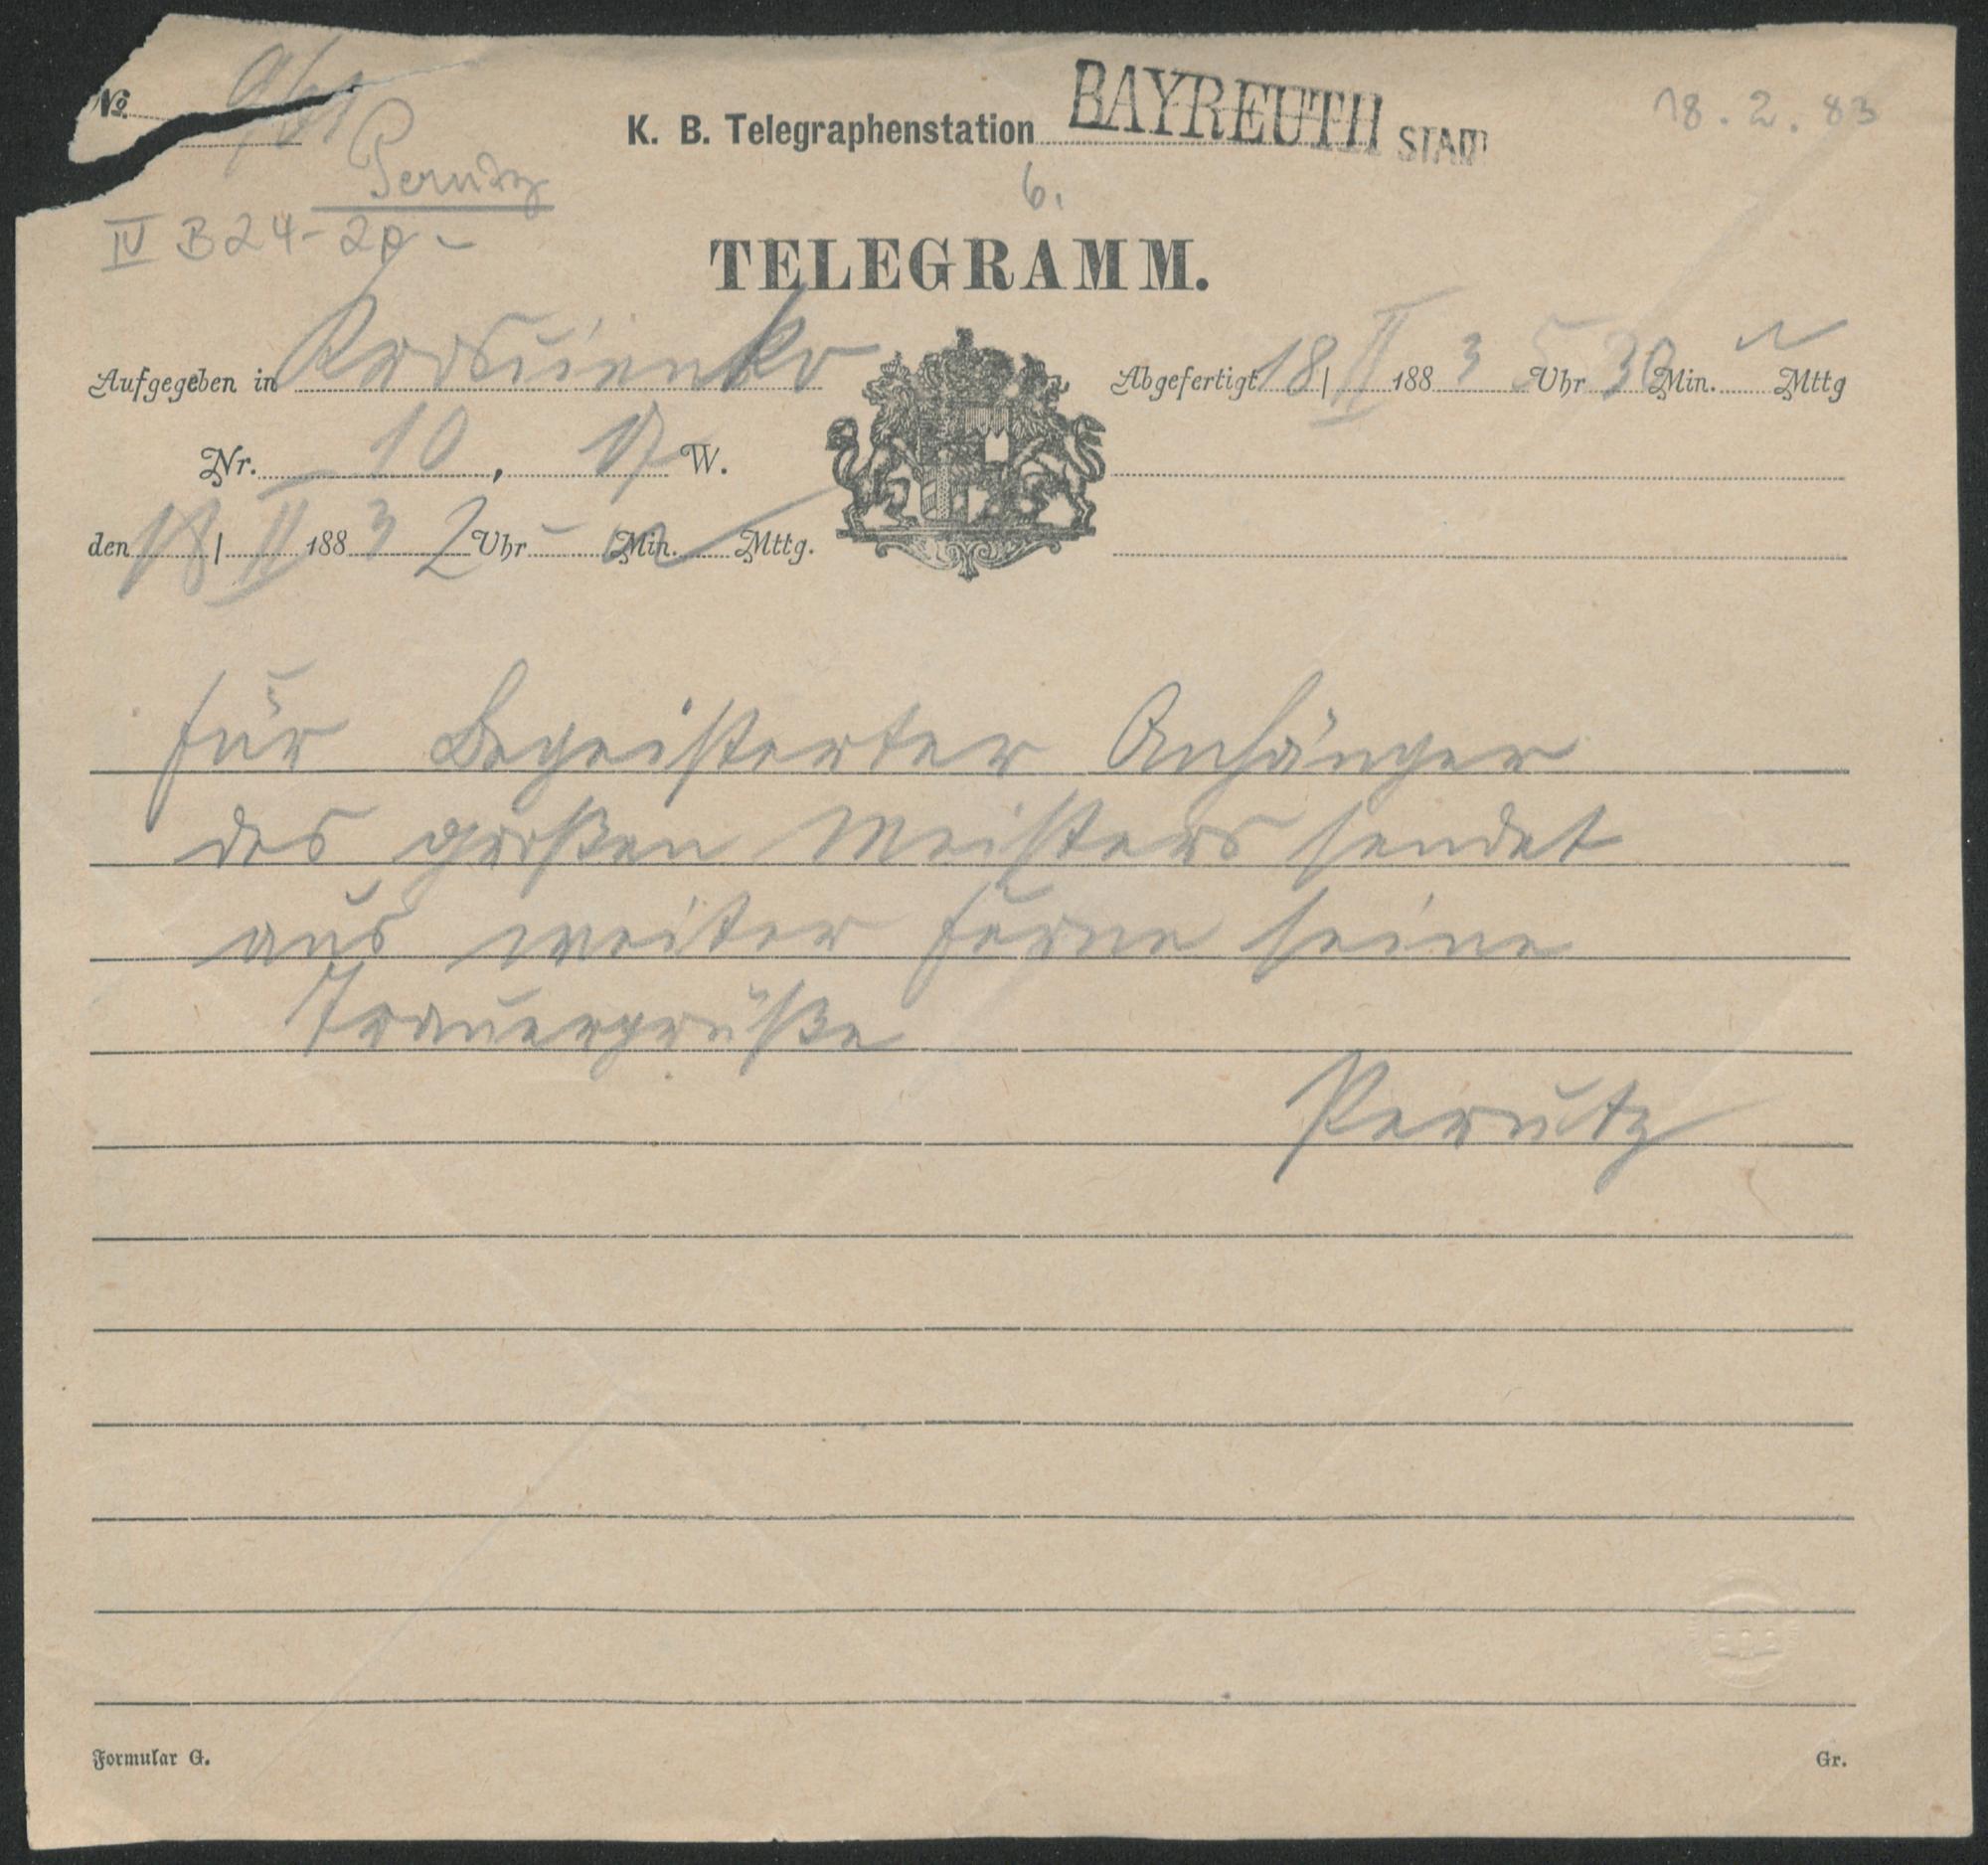 No.
18. 2. 83
K. B. Telegraphenstation BAYREUTH STADT
Perutz
6.
IV B 24-2p-
TELEGRAMM.
Aufgegeben in
Abgefertigt 18 | II 1883 5 Uhr 30 Min. Mttg
Nr. 10, 17 W.
den 18 | II 1883 2 Uhr - Min. Mttg.
für Begeisterter Anhänger
des großen Meisters sendet
aus weiter Ferne seine
Trauergrüße
Perutz
Formular G.
Gr.